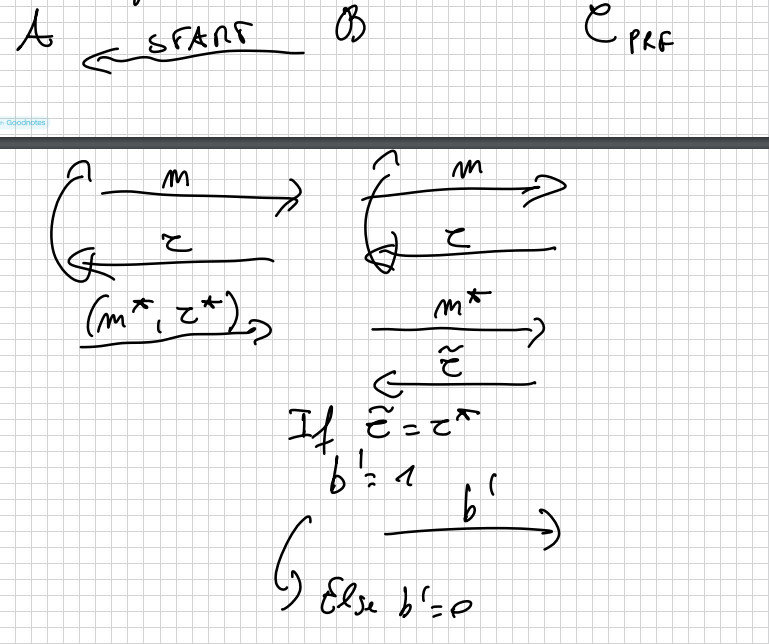 A START B C_PRF
Goodnotes
m m
τ τ
(m*, τ*) m*
τ̃
If τ̃ = τ*
b' = 1
b'
Else b' = 0